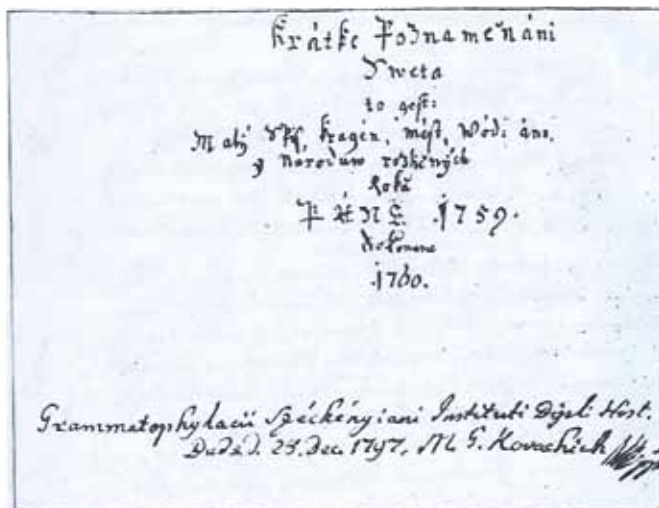 Krátke Poznameňáni
Sweta
to gest:
Malý Spis, Kragén, měst,
y Narodùw rozličných
Roku
PÁNĚ 1759.
dokonane
1760.
Grammatophylacii Széchényiani Instituti Dipl. Hist.
Ded. d. 25. Dec. 1797. M. G. Kovachich